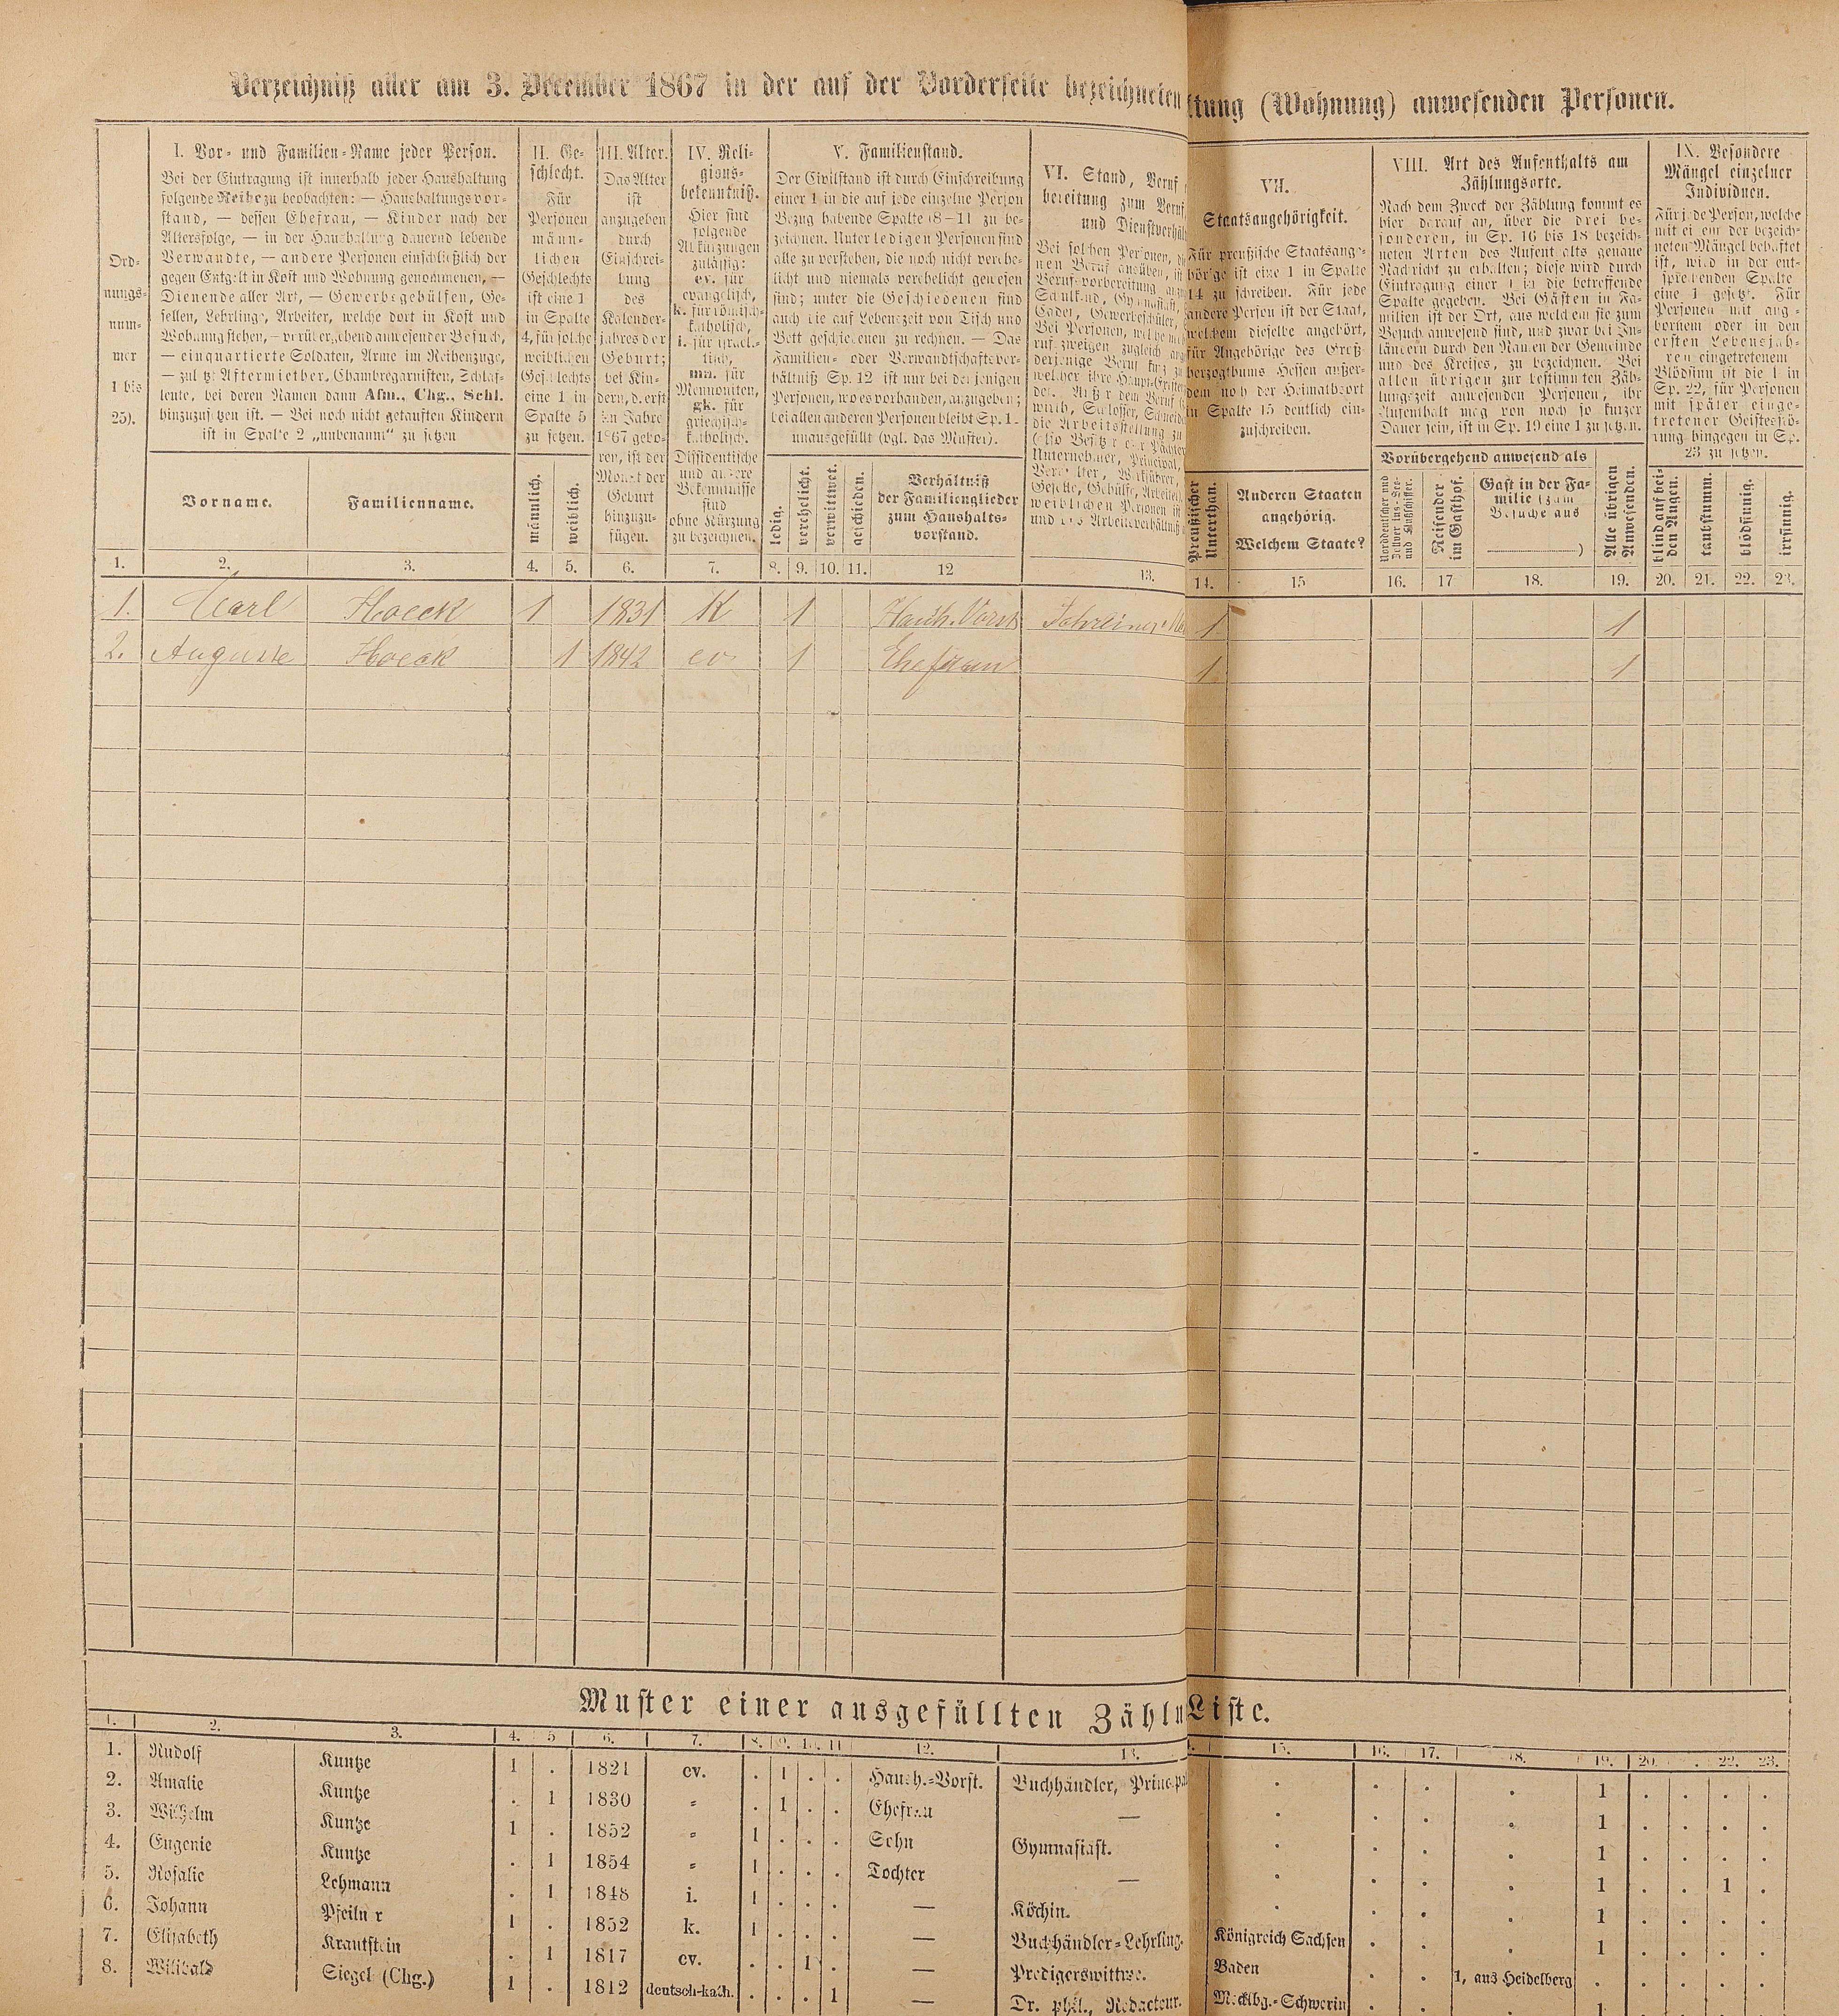 Verzeichniß aller am 3. December 1867 in der auf der Vorderseite bezeichneten
ttung (Wohnung) anwesenden Personen.
Ord-
nungs-
num-
mer
1 bis
25).
I. Vor- und Familien-Name jeder Person.
Bei der Eintragung ist innerhalb jeder Haushaltung
folgende Reihe zu beobachten: — Haushaltungsvor-
stand, — dessen Ehefrau, — Kinder nach der
Altersfolge, — in der Haushaltung dauernd lebende
Verwandte, — andere Personen einschließlich der
gegen Entgelt in Kost und Wohnung genommenen, —
Dienende aller Art, — Gewerbsgehülfen, Ge-
sellen, Lehrlinge, Arbeiter, welche dort in Kost und
Wohnung stehen, — vorübergehend anwesender Besuch,
— einquartierte Soldaten, Arme im Reihenzuge,
— zuletzt Aftermiether, Chambregarnisten, Schlaf-
leute, bei deren Namen dann Afm., Chg., Schl.
hinzuzusetzen ist. — Bei noch nicht getauften Kindern
ist in Spalte 2 „unbenannt“ zu setzen
Vorname.
Familienname.
II. Ge-
schlecht.
Für
Personen
männ-
lichen
Geschlechts
ist eine 1
in Spalte
4, für solche
weiblichen
Geschlechts
eine 1 in
Spalte 5
zu setzen.
männlich.
weiblich.
III. Alter.
Das Alter
ist
anzugeben
durch
Einschrei-
bung
des
Kalender-
jahres der
Geburt;
bei Kin-
dern, d. erst
im Jahre
1867 gebo-
ren, ist der
Monat der
Geburt
hinzuzu-
fügen.
IV. Reli-
gions-
bekenntniß.
Hier sind
folgende
Abkürzungen
zulässig:
ev. für
evangelisch,
k. für römisch-
katholisch,
i. für israeli-
tisch,
mn. für
Mennoniten,
gk. für
griechisch-
katholisch.
Dissidentische
und andere
Bekenntnisse
sind
ohne Kürzung
zu bezeichnen.
V. Familienstand.
Der Civilstand ist durch Einschreibung
einer 1 in die auf jede einzelne Person
Bezug habende Spalte (8-11) zu be-
zeichnen. Unter ledigen Personen sind
alle zu verstehen, die noch nicht verehe-
licht und niemals verehelicht gewesen
sind; unter die Geschiedenen sind
auch die auf Lebenszeit von Tisch und
Bett geschiedenen zu rechnen. — Das
Familien- oder Verwandtschaftsver-
hältniß Sp. 12 ist nur bei denjenigen
Personen, wo es vorhanden, anzugeben;
bei allen anderen Personen bleibt Sp. 12
unausgefüllt (vgl. das Muster).
ledig.
verehelicht.
verwittwet.
geschieden.
Verhältniß
der Familienglieder
zum Haushalts-
vorstand.
VI. Stand, Beruf
bereitung zum Beruf,
und Dienstverhäl
VII.
Staatsangehörigkeit.
Für preußische Staatsange-
hörige ist eine 1 in Spalte
14 zu schreiben. Für jede
andere Person ist der Staat,
welchem dieselbe angehört,
für Angehörige des Groß-
herzogthums Hessen außer-
dem noch der Heimathsort
in Spalte 15 deutlich ein-
zuschreiben.
Preußischer
Unterthan.
Anderen Staaten
angehörig.
Welchem Staate?
VIII. Art des Aufenthalts am
Zählungsorte.
Nach dem Zweck der Zählung kommt es
hier darauf an, über die drei be-
sonderen, in Sp. 16 bis 18 bezeich-
neten Arten des Aufenthalts genaue
Nachricht zu erhalten; diese wird durch
Eintragung einer 1 in die betreffende
Spalte gegeben. Bei Gästen in Fa-
milien ist der Ort, aus welchem sie zum
Besuch anwesend sind, und zwar bei In-
ländern durch den Namen der Gemeinde
und des Kreises, zu bezeichnen. Bei
allen übrigen zur bestimmten Zäh-
lungszeit anwesenden Personen, ihr
Aufenthalt mag von noch so kurzer
Dauer sein, ist in Sp. 19 eine 1 zu setzen.
Vorübergehend anwesend als
Reisender
im Gasthof.
Gast in der Fa-
milie (zum
Besuche aus
)
Alle übrigen
Anwesenden.
IX. Besondere
Mängel einzelner
Individuen.
Für jede Person, welche
mit einem der bezeich-
neten Mängel behaftet
ist, wird in der ent-
sprechenden Spalte
eine 1 gesetzt. Für
Personen mit ange-
bornem oder in den
ersten Lebensjah-
ren eingetretenem
Blödsinn ist die 1 in
Sp. 22, für Personen
mit später einge-
tretener Geistesstö-
rung hingegen in Sp.
23 zu setzen.
blind auf bei-
den Augen.
taubstumm.
blödsinnig.
irrsinnig.
1. 2. 3. 4. 5. 6. 7. 8. 9. 10. 11. 12 13. 14. 15 16. 17 18. 19. 20. 21. 22. 23.
1. Carl Hoeck 1 1831 K 1 Haush. Vorst 1 1
2. Auguste Hoeck 1 1842 ev. 1 Ehefrau 1 1
Muster einer ausgefüllten Zählu Liste.
1. 2. 3. 4. 5 6. 7. 8. 9. 10. 11 12. 13. 15. 16. 17. 18. 19. 20. 22. 23.
1. Rudolf Kuntze 1 . 1821 ev. . 1 . . Haush.-Vorst. Buchhändler, Principa . . . . 1 . . . .
2. Amalie Kuntze . 1 1830 " . 1 . . Ehefrau — . . . . 1 . . . .
3. Wilhelm Kuntze 1 . 1852 " 1 . . . Sohn Gymnasiast. . . . . 1 . . . .
4. Eugenie Kuntze . 1 1854 " 1 . . . Tochter — . . . . 1 . . 1 .
5. Rosalie Lehmann . 1 1848 i. 1 . . . — Köchin. . . . . 1 . . . .
6. Johann Pfeilner 1 . 1852 k. 1 . . . — Buchhändler-Lehrling. Königreich Sachsen . . . 1 . . . .
7. Elisabeth Krautstein . 1 1817 ev. . . 1 . — Predigerswittwe. Baden . . 1, aus Heidelberg . . . . .
8. Wilibald Siegel (Chg.) 1 . 1812 deutsch-kath. . . . 1 — Dr. phil., Redacteur. Mecklbg.-Schwerin . . . 1 . . . .